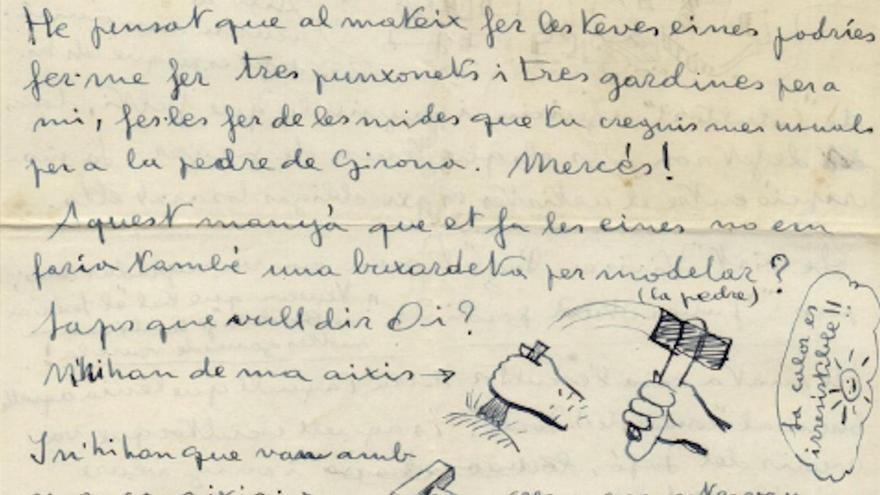 He pensat que al mateix fer les teves eines podríes
fer-me fer tres punxonets i tres gardines per a
mi, fes-les fer de les mides que tu creguis mes usuals
per a la pedre de Girona. Mercés!
Aquest manyà que et fa les eines no em
faría també una buxardeta per modelar?
(la pedre)
Saps que vull dir Oi?
N'hihan de ma aixis →
I n'hihan que van amb
La calor es
irresistible!!